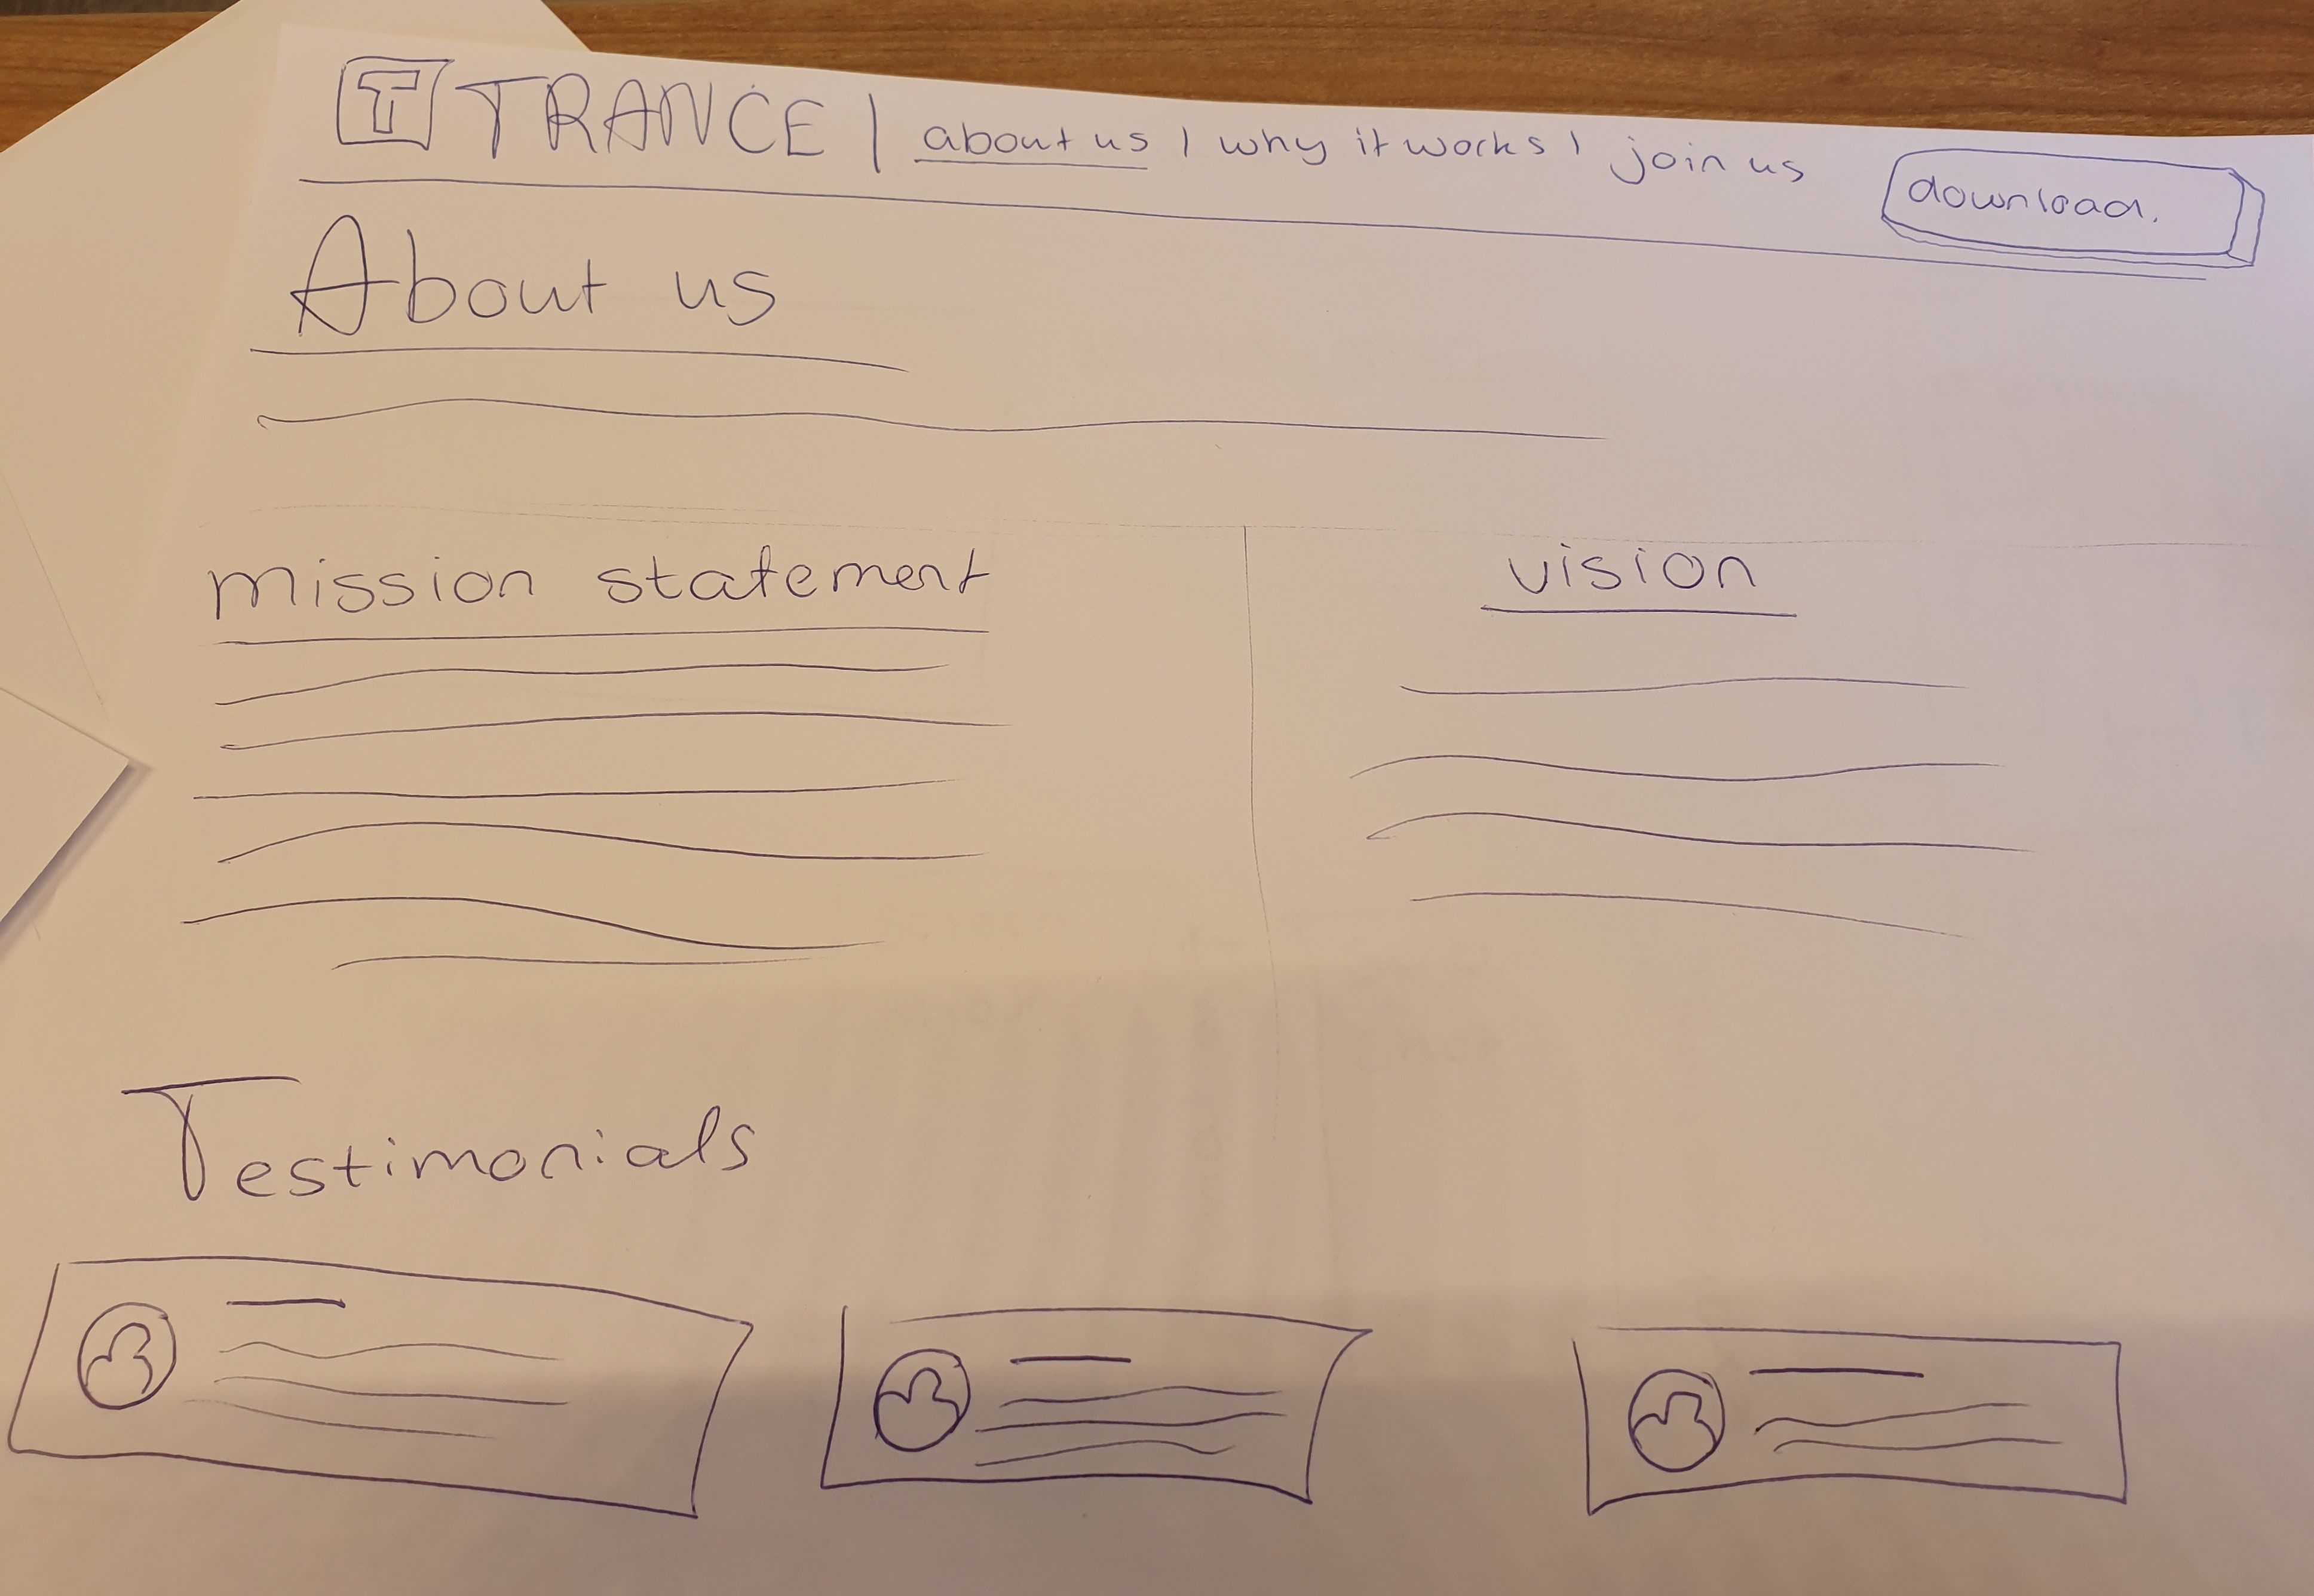 T TRANCE | about us | why it works | join us download.
About us
mission statement
vision
Testimonials